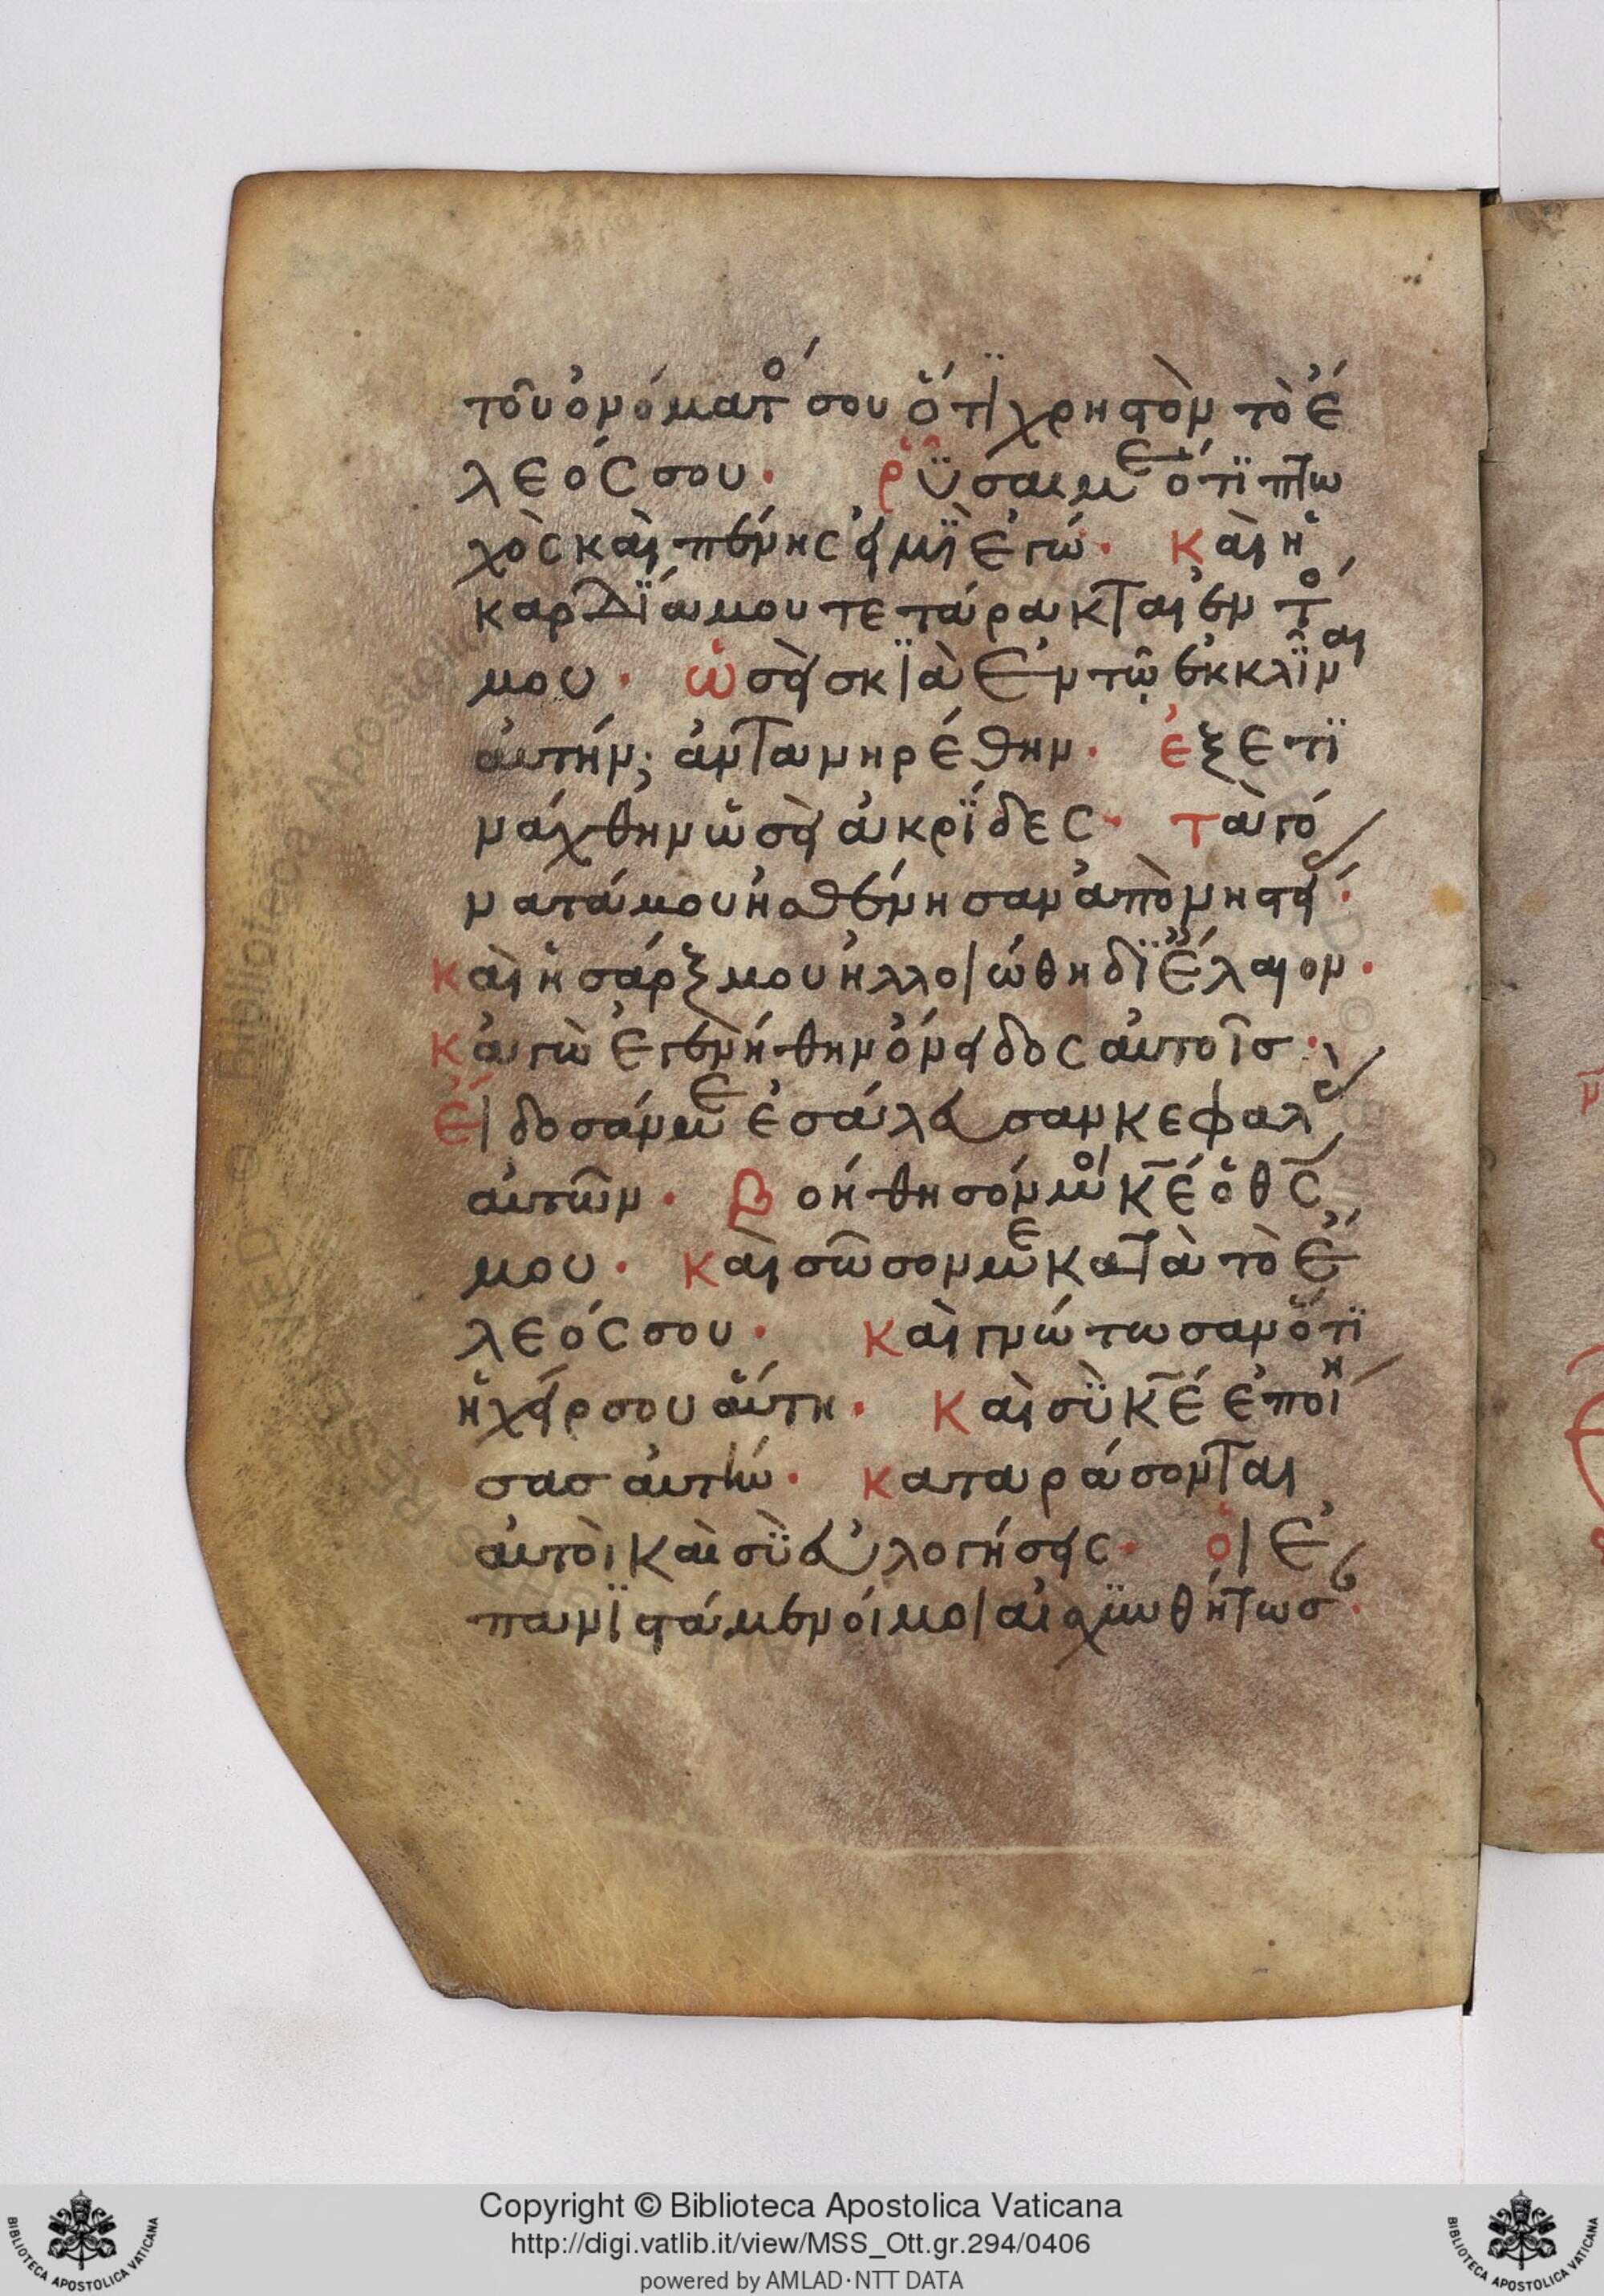 τοῦ ὀνόματό σου ὅτϊ χρηστὸν τὸ ἔ
λεός σου· ῥῦσαι με ὅτϊ πτω
χὸς καὶ πένης εἰμὶ ἐγώ· καὶ ἡ
καρδΐα μου τετάρακται ἐν τό
μου· ὡσεὶ σκϊὰ ἐν τῷ ἐκκλῖναι
αὐτήν; ἀντανηρέθην· ἐξετϊ
νάχθην ὡσεὶ ἀκρΐδες· τὰ γό
νατά μου ἠσθένησαν ἀπὸ νηστεί·
καὶ ἡ σάρξ μου ἠλλοιώθη δϊ ἔλαιον·
κἀγὼ ἐγενήθην ὄνειδος αὐτοῖσ·
εἴδοσάν με ἐσάλευσαν κεφαλὰ
αὐτῶν· βοήθησόν μοι κ̅ε̅ ὁ θ̅ς̅
μου· καὶ σῶσον με κατὰ τὸ ἔ
λεός σου· καὶ γνώτωσαν ὅτϊ
ἡ χείρ σου αὕτη· καὶ σὺ κ̅ε̅ ἐποίη
σασ αὐτήν· καταράσονται
αὐτοὶ καὶ σὺ εὐλογήσεις· οἱ ἐ
πανϊστάμενοί μοι αἰσχυνθήτωσ·
Copyright © Biblioteca Apostolica Vaticana
http://digi.vatlib.it/view/MSS_Ott.gr.294/0406
powered by AMLAD·NTT DATA
BIBLIOTECA APOSTOLICA VATICANA
BIBLIOTECA APOSTOLICA VATICANA